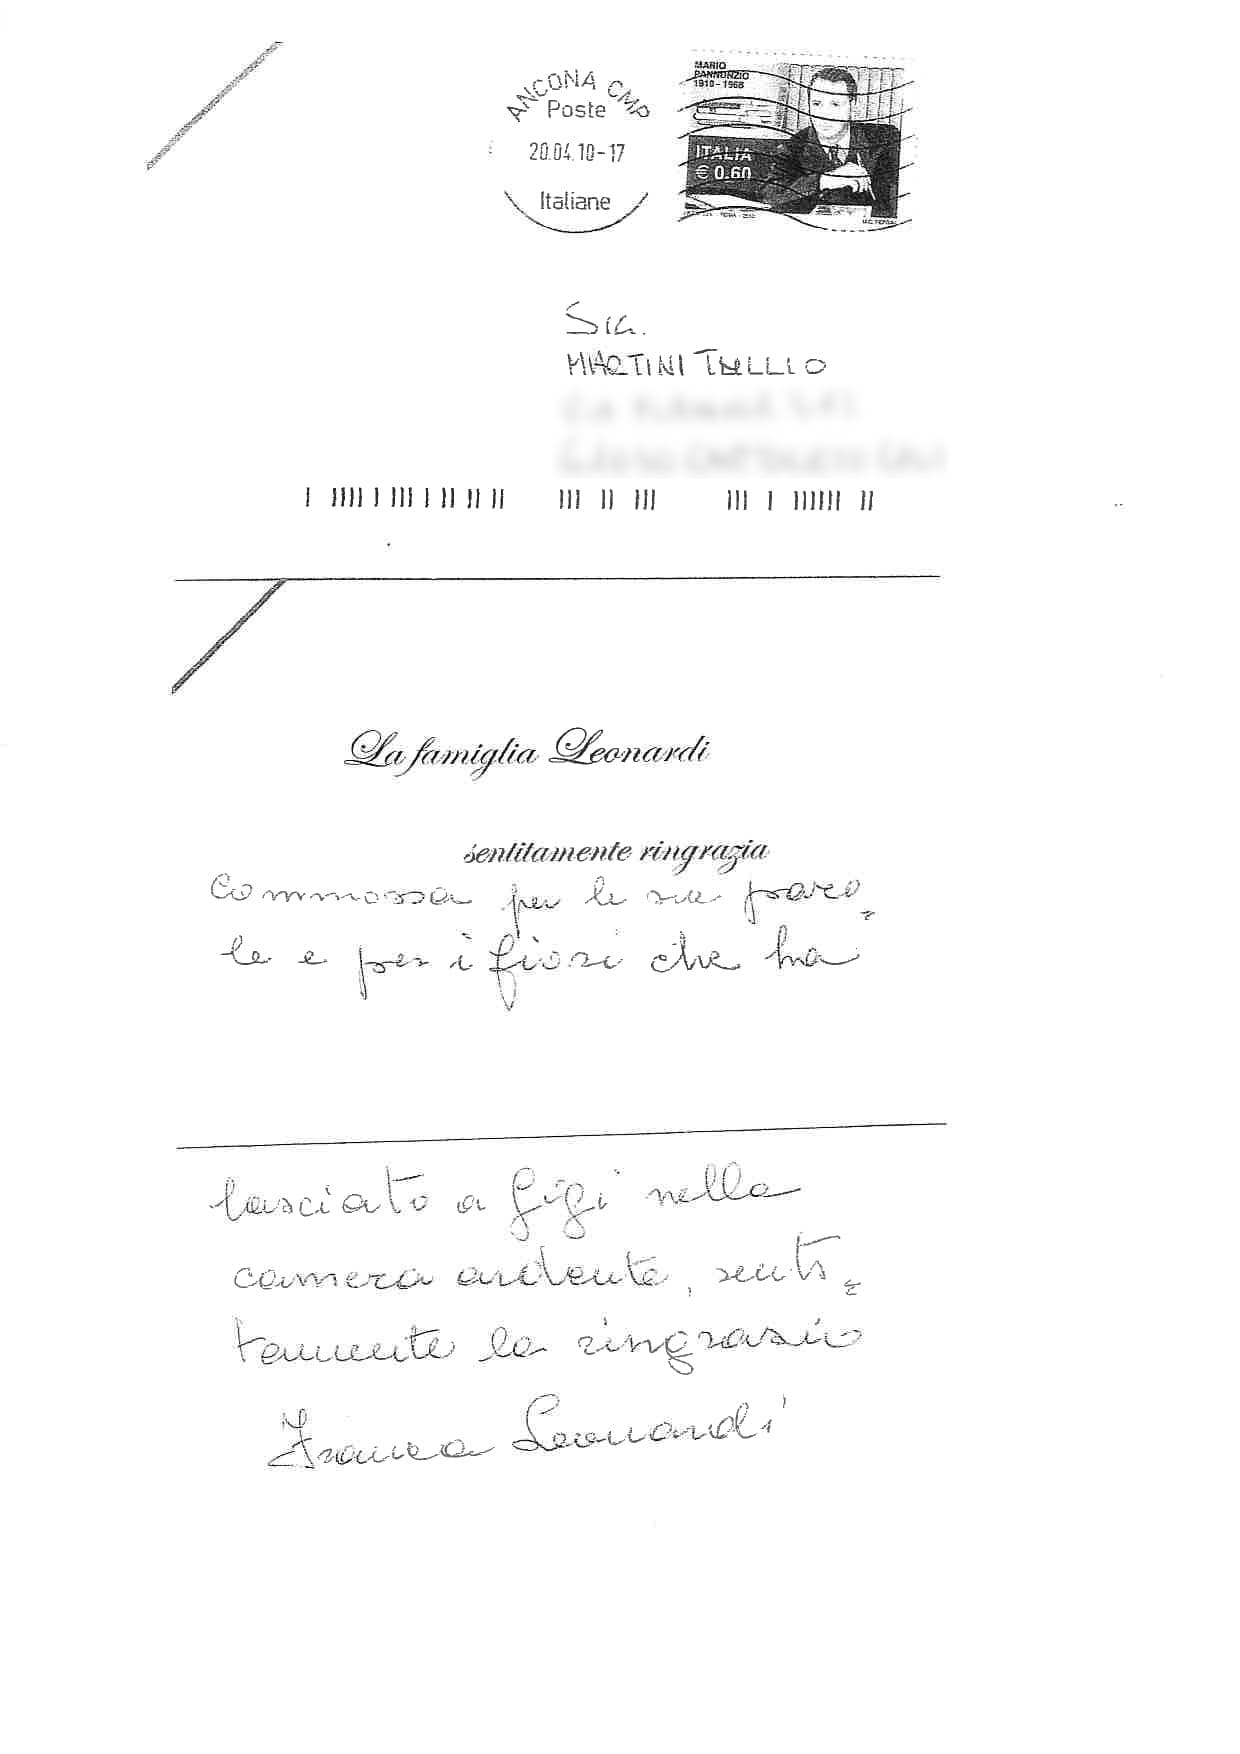 ANCONA CMP
Poste
20.04.10-17
Italiane
MARIO
PANNUNZIO
1910-1968
ITALIA
€ 0.60
SIG.
MARTINI TULLIO
La famiglia Leonardi
sentitamente ringrazia
Commossa per le sue paro=
le e per i fiori che ha
lasciato a Gigi nella
camera ardente, senti=
tamente la ringrazio
Franca Leonardi